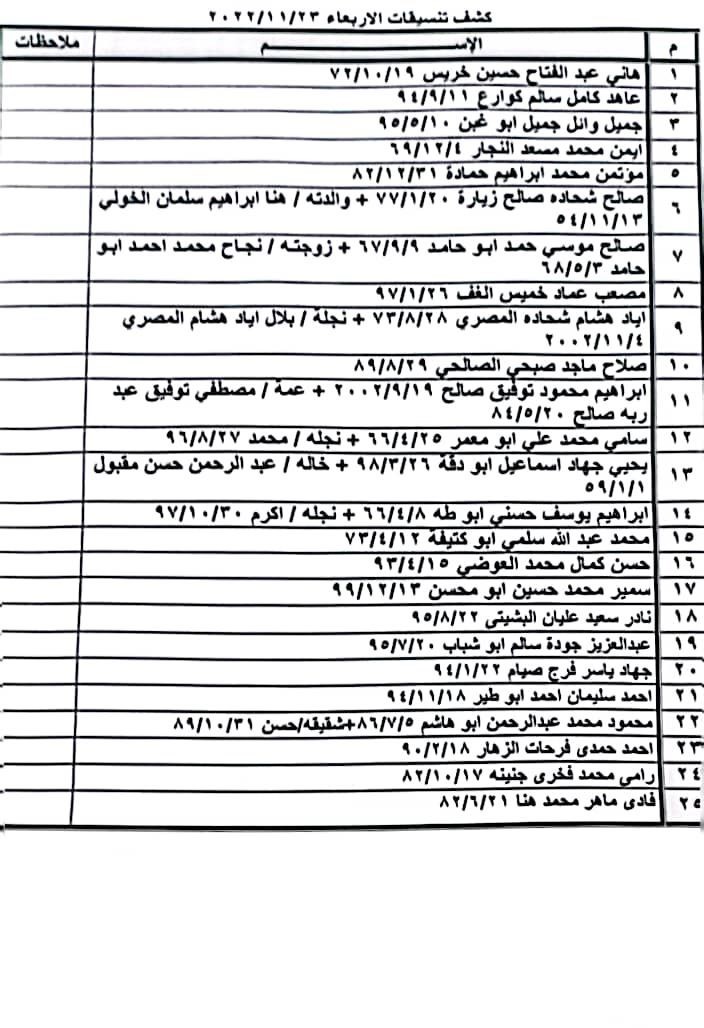 كشف تنسيقات الاربعاء ٢٠٢٢/١١/٢٣
م الإســـــــــم ملاحظات
١ هاني عبد الفتاح حسين خريس ٧٢/١٠/١٩
٢ عاهد كامل سالم كوارع ٩٤/٩/١١
٣ جميل وائل جميل ابو غبن ٩٥/٥/١٠
٤ ايمن محمد مسعد النجار ٦٩/١٢/٤
٥ مؤتمن محمد ابراهيم حمادة ٨٢/١٢/٣١
٦ صالح شحاده صالح زيارة ٧٧/١/٢٠ + والدته / هنا ابراهيم سلمان الخولي
٥٤/١١/١٣
٧ صالح موسي حمد ابو حامد ٦٧/٩/٩ + زوجته / نجاح محمد احمد ابو
حامد ٦٨/٥/٣
٨ مصعب عماد خميس الغف ٩٧/١/٢٦
٩ اياد هشام شحاده المصري ٧٣/٨/٢٨ + نجلة / بلال اياد هشام المصري
٢٠٠٢/١١/٤
١٠ صلاح ماجد صبحي الصالحي ٨٩/٨/٢٩
١١ ابراهيم محمود توفيق صالح ٢٠٠٢/٩/١٩ + عمة / مصطفي توفيق عبد
ربه صالح ٨٤/٥/٢٠
١٢ سامي محمد علي ابو معمر ٦٦/٤/٢٥ + نجله / محمد ٩٦/٨/٢٧
١٣ يحيي جهاد اسماعيل ابو دقة ٩٨/٣/٢٦ + خاله / عبد الرحمن حسن مقبول
٥٩/١/١
١٤ ابراهيم يوسف حسني ابو طه ٦٦/٤/٨ + نجله / اكرم ٩٧/١٠/٣٠
١٥ محمد عبد الله سلمي ابو كتيفة ٧٣/٤/١٢
١٦ حسن كمال محمد العوضي ٩٣/٤/١٥
١٧ سمير محمد حسين ابو محسن ٩٩/١٢/١٣
١٨ نادر سعيد عليان البشيتى ٩٥/٨/٢٢
١٩ عبدالعزيز جودة سالم ابو شباب ٩٥/٧/٢٠
٢٠ جهاد ياسر فرج صيام ٩٤/١/٢٢
٢١ احمد سليمان احمد ابو طير ٩٤/١١/١٨
٢٢ محمود محمد عبدالرحمن ابو هاشم ٨٦/٧/٥+شقيقه/حسن ٨٩/١٠/٣١
٢٣ احمد حمدى فرحات الزهار ٩٠/٢/١٨
٢٤ رامى محمد فخرى جنينه ٨٢/١٠/١٧
٢٥ فادى ماهر محمد هنا ٨٢/٦/٢١